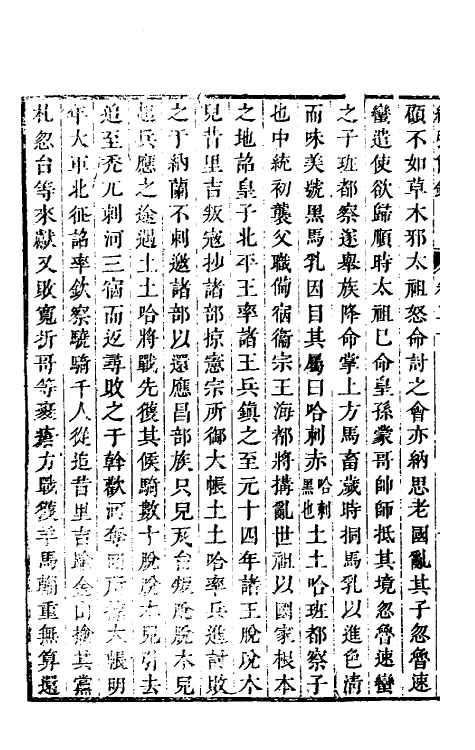 顧不如草木邪太祖怒命討之會亦納思老國亂其子忽魯速
蠻遣使欲歸順時太祖已命皇孫蒙哥帥師抵其境忽魯速蠻
之子班都察遂舉族降命掌上方馬畜歲時挏馬乳以進色清
而味美號黑馬乳因目其屬曰哈剌赤哈剌黑也土土哈班都察子
也中統初襲父職備宿衛宗王海都將搆亂世祖以國家根本
之地詔皇子北平王率諸王兵鎮之至元十四年諸王脫脫木
兒昔里吉叛寇抄諸部掠憲宗所御大帳土土哈率兵進討敗
之于納蘭不剌邀諸部以還應昌部族只兒瓦台叛脫脫木兒
兵應之途遇土土哈將戰先獲其候騎數十脫脫木兒引去
追至禿兀剌河三宿而返尋敗之于斡歡河奪所大帳明
年大軍北征詔率欽察驍騎千人從追昔里吉踰金山擒其黨
札忽台等來獻又敗寬折哥等裹瘡方戰獲羊馬輜重無算還